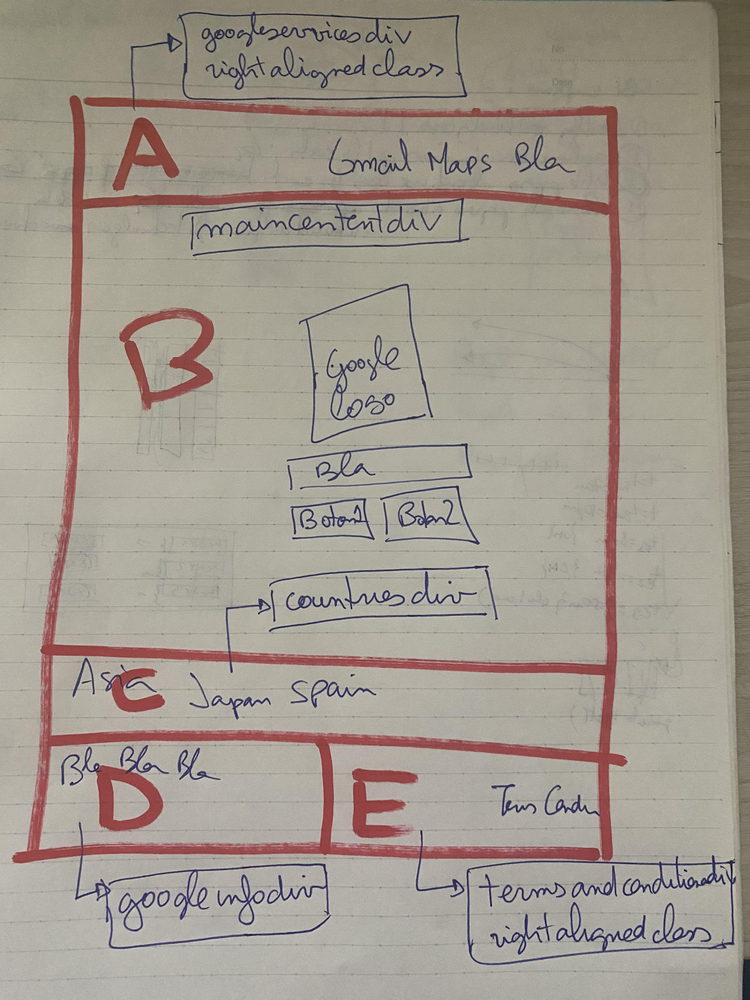 googleservicesdiv
rightalignedclass
A
Gmail Maps Bla
maincontentdiv
B
Google
Logo
Bla
Boton1 Boton2
countriesdiv
Asia C Japan Spain
Bla Bla Bla
D
E
Terms Cond
googleinfodiv
termsandconditionsdiv
rightalignedclass